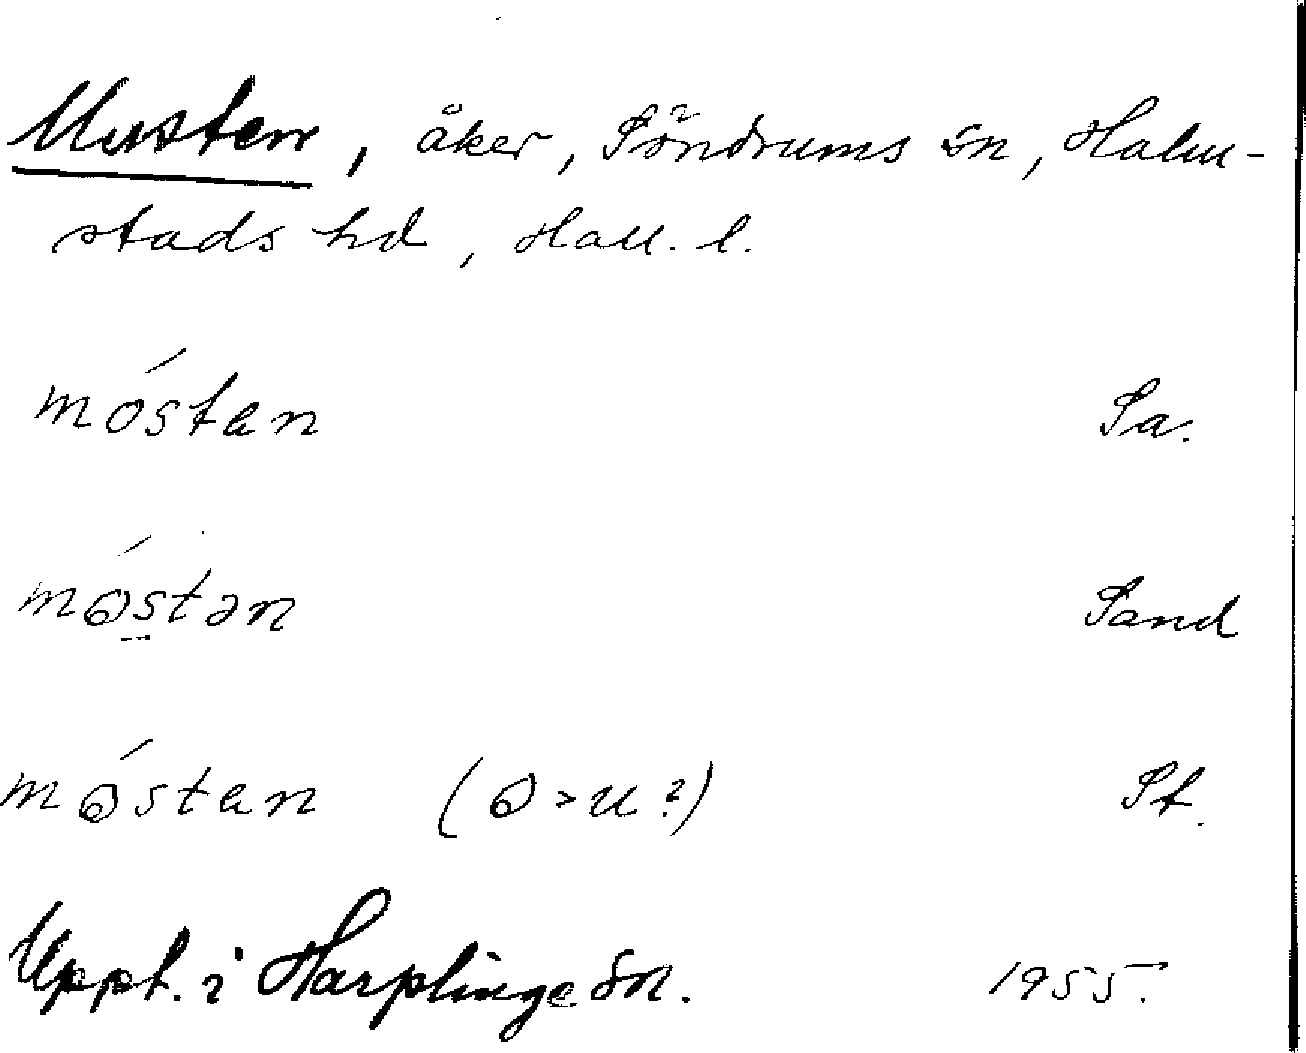 Musten, åker, Söndrums sn, Halm-
stads hd, Hall. l.
móstan Sa.
mósten Sand
móstan (ω>u?) St.
Uppt. i Harplinge sn. 1955.